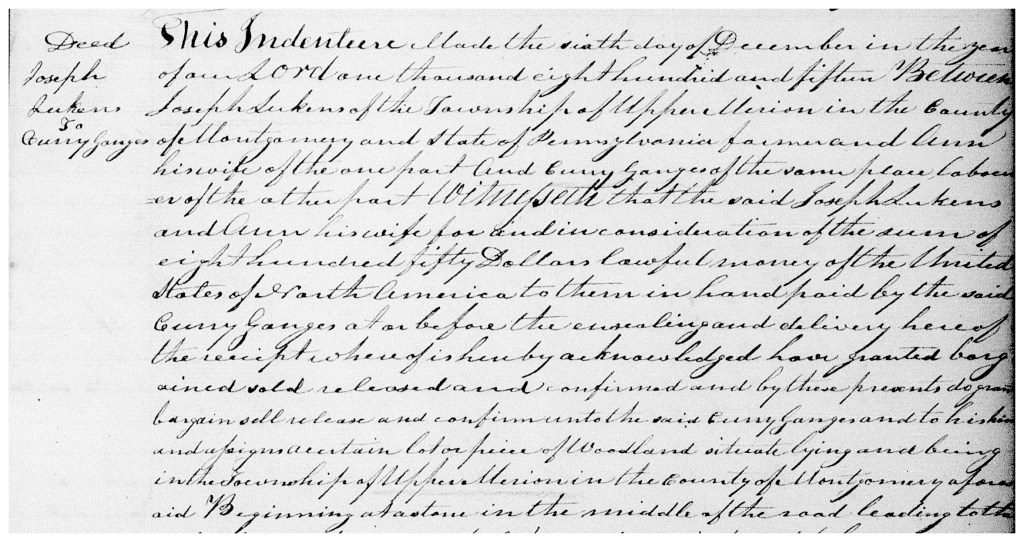 Deed
Joseph
Lukens
To
Curry Ganges
This Indenture Made the sixth day of December in the year
of our LORD one thousand eight hundrid and fifteen Between
Joseph Lukens of the Township of Upper Merion in the County
of Montgomery and State of Pennsylvania farmer and Ann
his wife of the one part And Curry Ganges of the same place labour
=er of the other part Witnesseth that the said Joseph Lukens
and Ann his wife for and in consideration of the sum of
eight hundred fifty Dollars lawful money of the United
States of North America to them in hand paid by the said
Curry Ganges at or before the ensealing and delivery here of
the receipt where of is hereby acknowledged have granted barg
ained sold released and confirmed and by these presents do gran
bargain sell release and confirm unto the said Curry Ganges and to his heir
and assigns a certain lot or piece of Woodland situate lying and being
in the Township of Upper Merion in the County of Montgomery afores
aid Beginning at a stone in the middle of the road leading to the